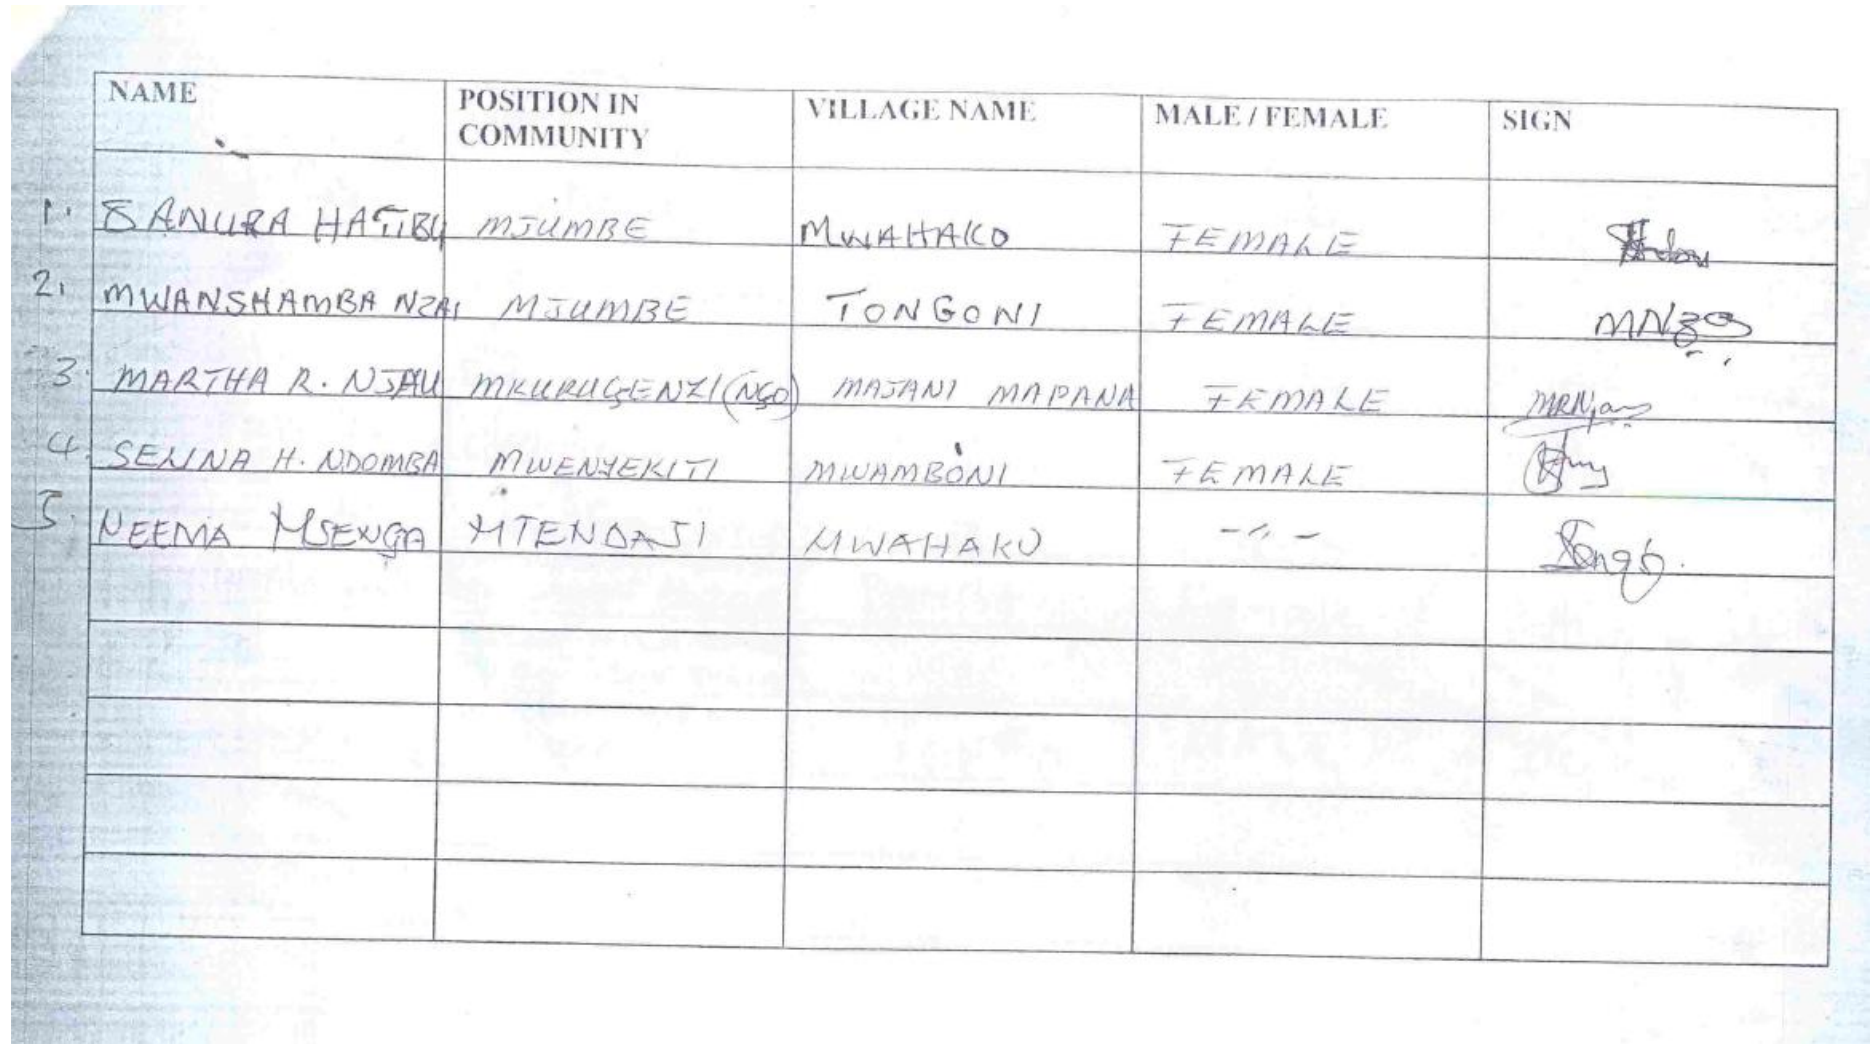 NAME POSITION IN COMMUNITY VILLAGE NAME MALE / FEMALE SIGN
1. SANURA HATIBU MJUMBE MWAHAKO FEMALE
2. MWANSHAMBA NZAI MJUMBE TONGONI FEMALE
3. MARTHA R. NJAU MKURUGENZI (NGO) MAJANI MAPANA FEMALE MRNjau
4. H. NDOMBA MWENYEKITI MWAMBONI FEMALE
5. NEEMA MSENGA MTENDAJI MWAHAKO -"-